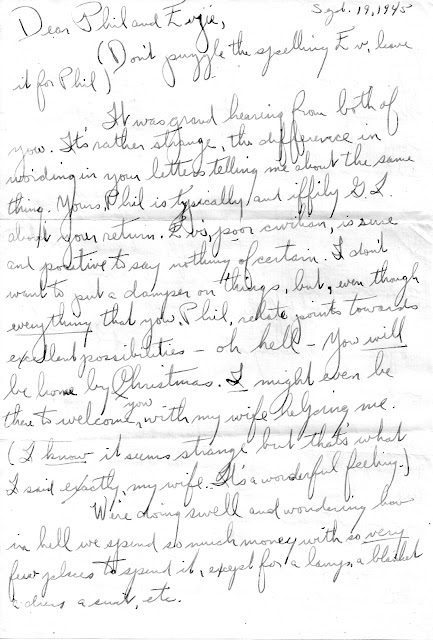 Sept. 19, 1945
Dear Phil and Evzie,
(Don't puzzle the spelling Ev, leave
it for Phil)
It was grand hearing from both of
you. It's rather strange, the difference in
wording in your letters telling me about the same
thing. Yours, Phil is typically and iffily G.I.
about your return. Ev's, poor civilian, is sure
and positive to say nothing of certain. I don't
want to put a damper on things, but, even though
everything that you, Phil, relate points towards
excellent possibilities – oh hell – You will
be home by Christmas. I might even be
there to welcome you, with my wife helping me.
(I know it seems strange but that's what
I said exactly, my wife. It's a wonderful feeling.)
We're doing swell and wondering how
in hell we spend so much money with so very
few places to spend it, except for a lamp, a blanket
a dress a suit, etc.